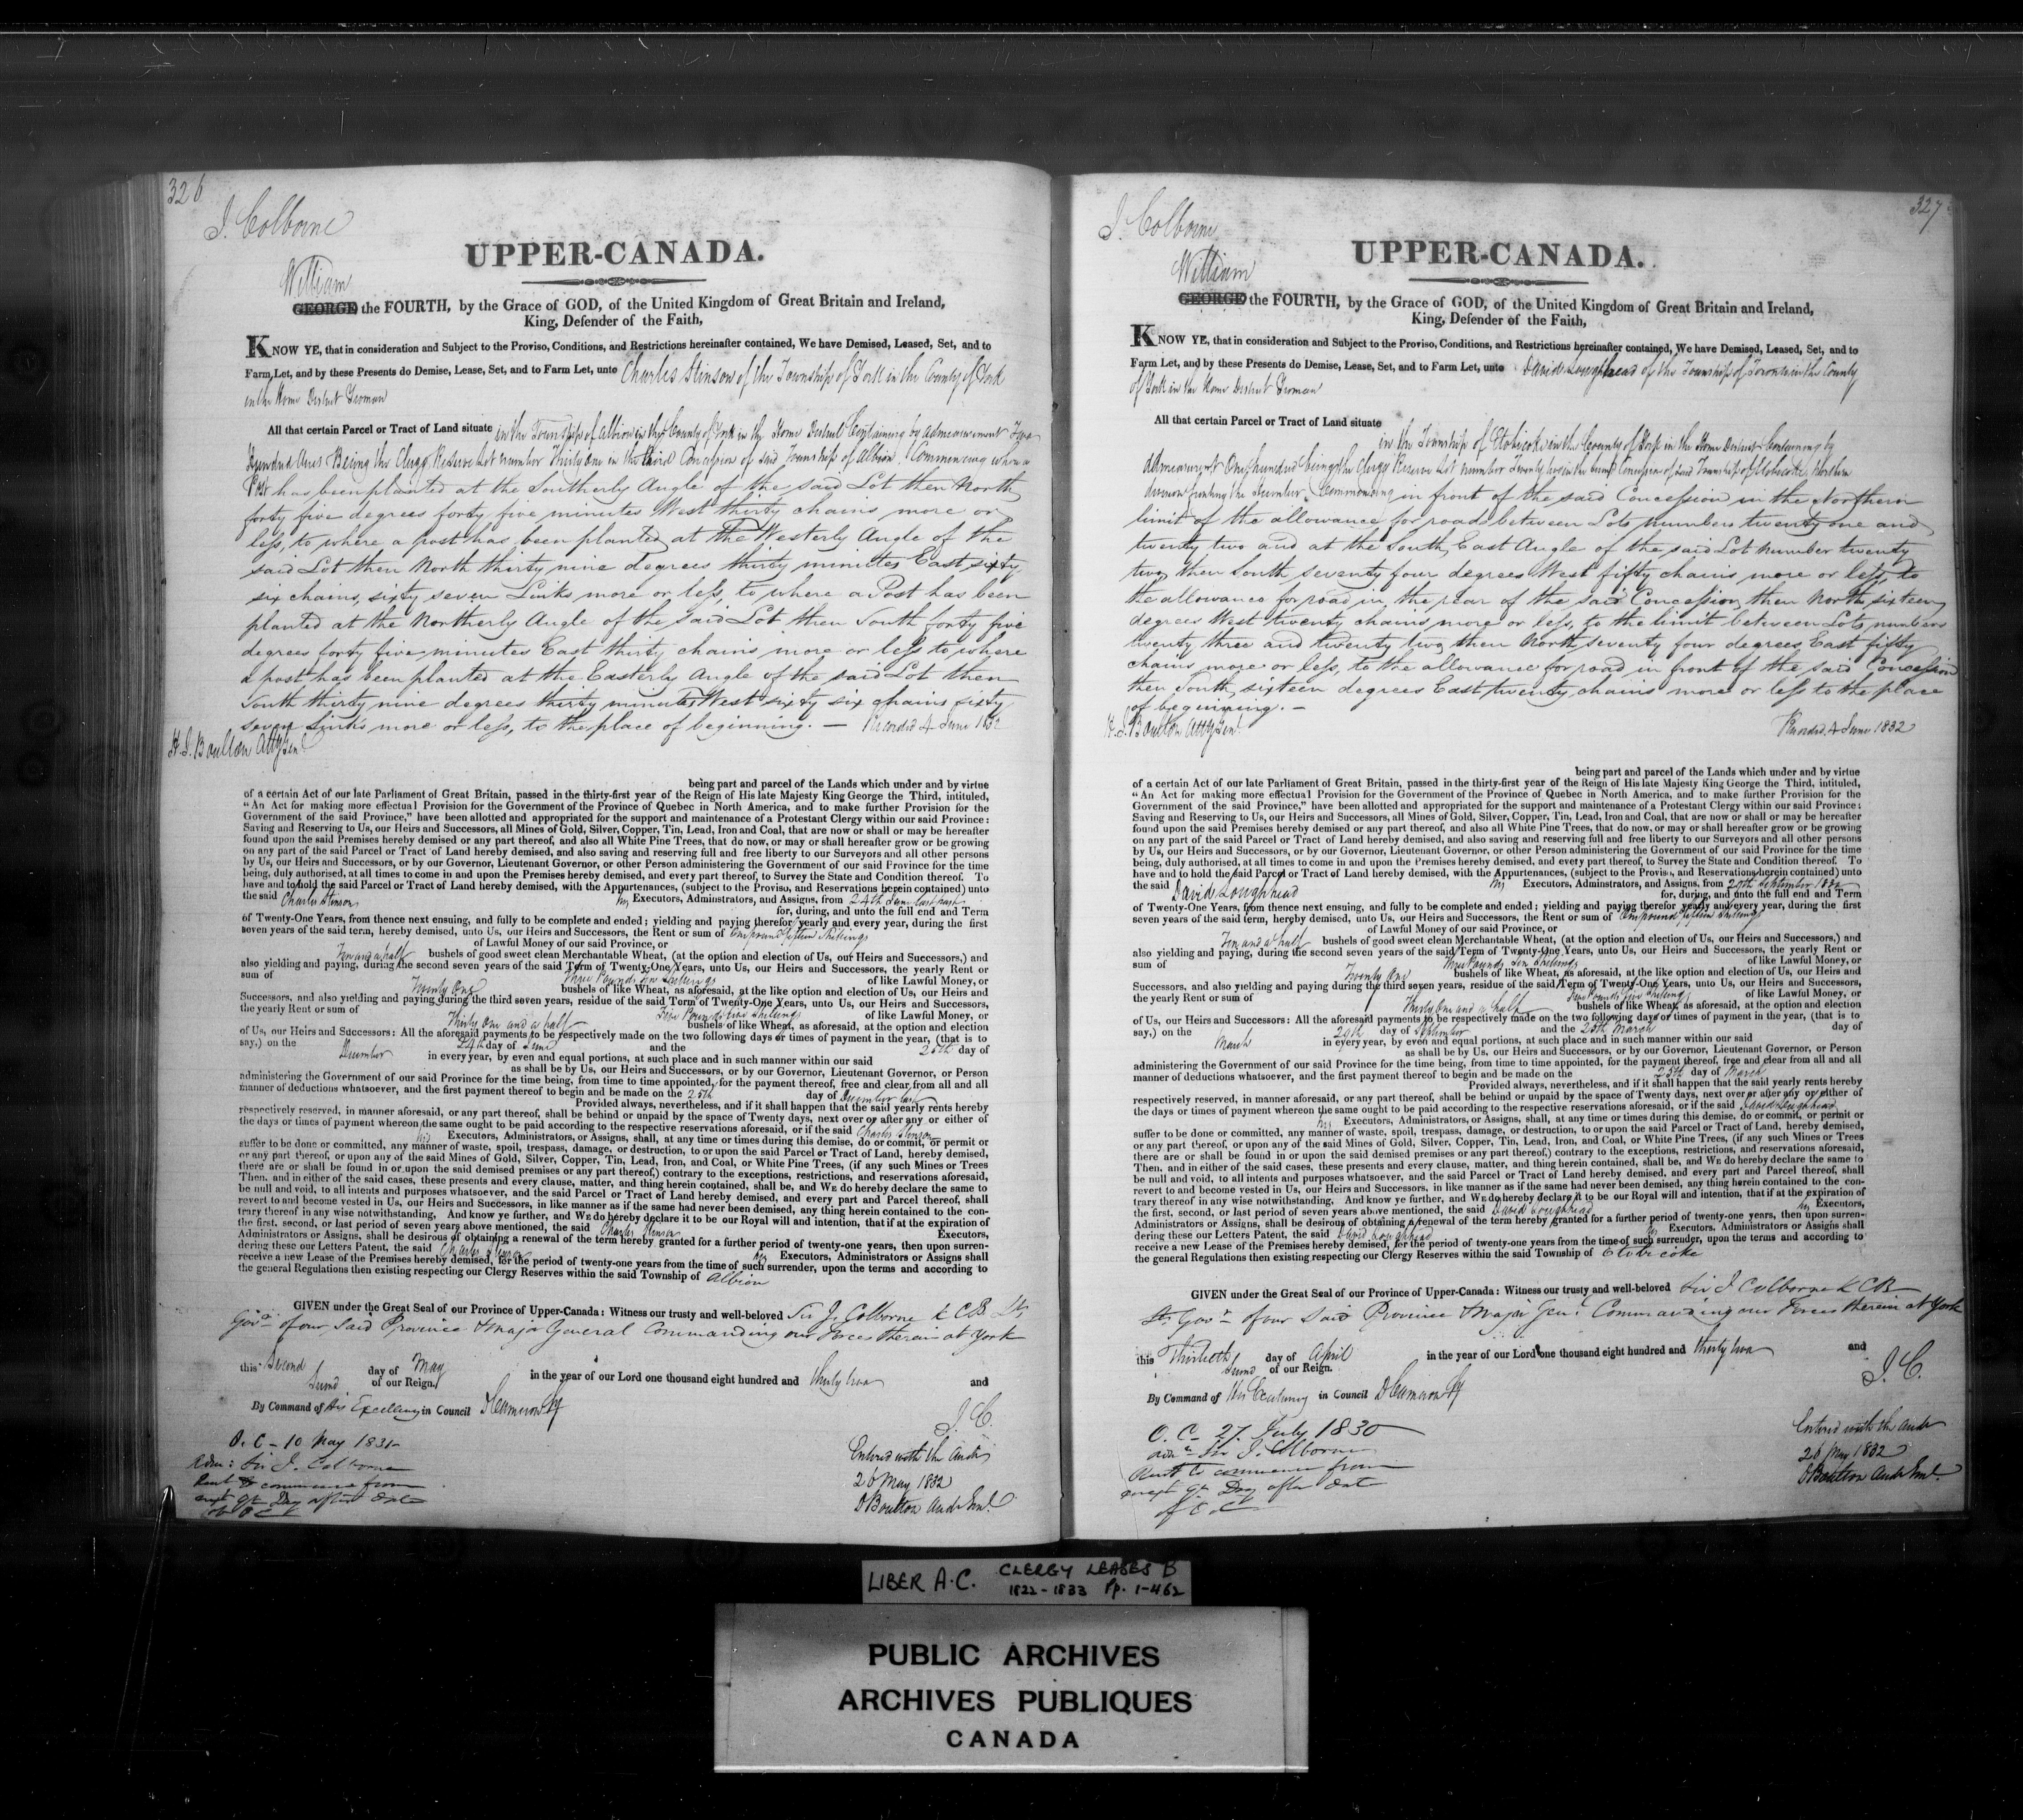 326
J. Colborne
UPPER-CANADA.
William
GEORGE the FOURTH, by the Grace of GOD, of the United Kingdom of Great Britain and Ireland,
King, Defender of the Faith,
KNOW YE, that in consideration and Subject to the Proviso, Conditions, and Restrictions hereinafter contained, We have Demised, Leased, Set, and to
Farm Let, and by these Presents do Demise, Lease, Set, and to Farm Let, unto Charles Stinson of the Township of York in the County of York
in the Home District Yeoman
All that certain Parcel or Tract of Land situate in the Township of Albion in the County of York in the Home District Containing by admeasurement Two
Hundred Acres Being the Clergy Reserve Lot number Thirty One in the third Concession of said Township of Albion. Commencing where a
Post has been planted at the Southerly Angle of the said Lot then North
forty five degrees forty five minutes West thirty chains more or
less, to where a post has been planted at the Westerly Angle of the
said Lot then North thirty nine degrees thirty minutes East sixty
six chains, sixty seven Links more or less, to where a Post has been
planted at the Northerly Angle of the said Lot then South forty five
degrees forty five minutes East thirty chains more or less to where
a post has been planted at the Easterly Angle of the said Lot then
South thirty nine degrees thirty minutes West sixty six chains sixty
seven Links more or less, to the place of beginning. — Recorded 4 June 1832
H. J. Boulton Atty Gen
being part and parcel of the Lands which under and by virtue
of a certain Act of our late Parliament of Great Britain, passed in the thirty-first year of the Reign of His late Majesty King George the Third, intituled,
"An Act for making more effectual Provision for the Government of the Province of Quebec in North America, and to make further Provision for the
Government of the said Province," have been allotted and appropriated for the support and maintenance of a Protestant Clergy within our said Province:
Saving and Reserving to Us, our Heirs and Successors, all Mines of Gold, Silver, Copper, Tin, Lead, Iron and Coal, that are now or shall or may be hereafter
found upon the said Premises hereby demised or any part thereof, and also all White Pine Trees, that do now, or may or shall hereafter grow or be growing
on any part of the said Parcel or Tract of Land hereby demised, and also saving and reserving full and free liberty to our Surveyors and all other persons
by Us, our Heirs and Successors, or by our Governor, Lieutenant Governor, or other Person administering the Government of our said Province for the time
being, duly authorised, at all times to come in and upon the Premises hereby demised, and every part thereof, to Survey the State and Condition thereof. To
have and to hold the said Parcel or Tract of Land hereby demised, with the Appurtenances, (subject to the Proviso, and Reservations herein contained) unto
the said Charles Stinson his Executors, Adminstrators, and Assigns, from 24th June last past
for, during, and unto the full end and Term
of Twenty-One Years, from thence next ensuing, and fully to be complete and ended; yielding and paying therefor yearly and every year, during the first
seven years of the said term, hereby demised, unto Us, our Heirs and Successors, the Rent or sum of One pound fifteen Shillings
of Lawful Money of our said Province, or
Ten and a half bushels of good sweet clean Merchantable Wheat, (at the option and election of Us, our Heirs and Successors,) and
also yielding and paying, during the second seven years of the said Term of Twenty-One Years, unto Us, our Heirs and Successors, the yearly Rent or
sum of Three Pounds Ten Shillings of like Lawful Money, or
Twenty One bushels of like Wheat, as aforesaid, at the like option and election of Us, our Heirs and
Successors, and also yielding and paying during the third seven years, residue of the said Term of Twenty-One Years, unto Us, our Heirs and Successors,
the yearly Rent or sum of Five Pounds five Shillings of like Lawful Money, or
Thirty One and a half bushels of like Wheat, as aforesaid, at the option and election
of Us, our Heirs and Successors: All the aforesaid payments to be respectively made on the two following days or times of payment in the year, (that is to
say,) on the 24th day of June and the 25th day of
December in every year, by even and equal portions, at such place and in such manner within our said
as shall be by Us, our Heirs and Successors, or by our Governor, Lieutenant Governor, or Person
administering the Government of our said Province for the time being, from time to time appointed, for the payment thereof, free and clear from all and all
manner of deductions whatsoever, and the first payment thereof to begin and be made on the 25th day of December last
Provided always, nevertheless, and if it shall happen that the said yearly rents hereby
respectively reserved, in manner aforesaid, or any part thereof, shall be behind or unpaid by the space of Twenty days, next over or after any or either of
the days or times of payment whereon the same ought to be paid according to the respective reservations aforesaid, or if the said Charles Stinson
his Executors, Administrators, or Assigns, shall, at any time or times during this demise, do or commit, or permit or
suffer to be done or committed, any manner of waste, spoil, trespass, damage, or destruction, to or upon the said Parcel or Tract of Land, hereby demised,
or any part thereof, or upon any of the said Mines of Gold, Silver, Copper, Tin, Lead, Iron, and Coal, or White Pine Trees, (if any such Mines or Trees
there are or shall be found in or upon the said demised premises or any part thereof,) contrary to the exceptions, restrictions, and reservations aforesaid,
Then, and in either of the said cases, these presents and every clause, matter, and thing herein contained, shall be, and WE do hereby declare the same to
be null and void, to all intents and purposes whatsoever, and the said Parcel or Tract of Land hereby demised, and every part and Parcel thereof, shall
revert to and become vested in Us, our Heirs and Successors, in like manner as if the same had never been demised, any thing herein contained to the con-
trary thereof in any wise notwithstanding. And know ye further, and WE do hereby declare it to be our Royal will and intention, that if at the expiration of
the first, second, or last period of seven years above mentioned, the said Charles Stinson Executors,
Administrators or Assigns, shall be desirous of obtaining a renewal of the term hereby granted for a further period of twenty-one years, then upon surren-
dering these our Letters Patent, the said Charles Stinson his Executors, Administrators or Assigns shall
receive a new Lease of the Premises hereby demised, for the period of twenty-one years from the time of such surrender, upon the terms and according to
the general Regulations then existing respecting our Clergy Reserves within the said Township of Albion
GIVEN under the Great Seal of our Province of Upper-Canada: Witness our trusty and well-beloved Sir J. Colborne K.C.B. Lt
Govr of our said Province & Major General Commanding our Forces therein at York
this Second day of May in the year of our Lord one thousand eight hundred and thirty two and
Second of our Reign.
By Command of His Excellency in Council D Cameron Sy
J. C.
O. C - 10 May 1831-
Adm: Sir J. Colborne
Rent to commence from
except Qr Day after date
of O C
Entered with the Audr
26 May 1832
D Boulton Audr Genl
327
J. Colborne
UPPER-CANADA.
William
GEORGE the FOURTH, by the Grace of GOD, of the United Kingdom of Great Britain and Ireland,
King, Defender of the Faith,
KNOW YE, that in consideration and Subject to the Proviso, Conditions, and Restrictions hereinafter contained, We have Demised, Leased, Set, and to
Farm Let, and by these Presents do Demise, Lease, Set, and to Farm Let, unto David Loughhead of the Township of Toronto in the County
of York in the Home District Yeoman
All that certain Parcel or Tract of Land situate
in the Township of Etobicoke in the County of York in the Home District Containing by
admeasurement One hundred being the Clergy Reserve Lot number Twenty two in the Concession of said Township of Etobicoke Northern
division fronting the Humber. Commencing in front of the said Concession in the Northern
limit of the allowance for roads between Lots numbers twenty one and
twenty two and at the South East Angle of the said Lot number twenty
two, then South seventy four degrees West fifty chains more or less, to
the allowance for road in the rear of the said Concession, then North sixteen
degrees West twenty chains more or less, to the limit between Lots numbers
twenty three and twenty two then North seventy four degrees East fifty
chains more or less, to the allowance for road in front of the said Concession
then South sixteen degrees East twenty chains more or less to the place
of beginning. -
H. J. Boulton Atty Genl
Recorded 4 June 1832
being part and parcel of the Lands which under and by virtue
of a certain Act of our late Parliament of Great Britain, passed in the thirty-first year of the Reign of His late Majesty King George the Third, intituled,
"An Act for making more effectual Provision for the Government of the Province of Quebec in North America, and to make further Provision for the
Government of the said Province," have been allotted and appropriated for the support and maintenance of a Protestant Clergy within our said Province:
Saving and Reserving to Us, our Heirs and Successors, all Mines of Gold, Silver, Copper, Tin, Lead, Iron and Coal, that are now or shall or may be hereafter
found upon the said Premises hereby demised or any part thereof, and also all White Pine Trees, that do now, or may or shall hereafter grow or be growing
on any part of the said Parcel or Tract of Land hereby demised, and also saving and reserving full and free liberty to our Surveyors and all other persons
by Us, our Heirs and Successors, or by our Governor, Lieutenant Governor, or other Person administering the Government of our said Province for the time
being, duly authorised, at all times to come in and upon the Premises hereby demised, and every part thereof, to Survey the State and Condition thereof. To
have and to hold the said Parcel or Tract of Land hereby demised, with the Appurtenances, (subject to the Proviso, and Reservations herein contained) unto
the said David Loughhead his Executors, Adminstrators, and Assigns, from 29th September 1830
for, during, and unto the full end and Term
of Twenty-One Years, from thence next ensuing, and fully to be complete and ended; yielding and paying therefor yearly and every year, during the first
seven years of the said term, hereby demised, unto Us, our Heirs and Successors, the Rent or sum of One pound fifteen Shillings
of Lawful Money of our said Province, or
Ten and a half bushels of good sweet clean Merchantable Wheat, (at the option and election of Us, our Heirs and Successors,) and
also yielding and paying, during the second seven years of the said Term of Twenty-One Years, unto Us, our Heirs and Successors, the yearly Rent or
sum of Three Pounds Ten Shillings of like Lawful Money, or
Twenty One bushels of like Wheat, as aforesaid, at the like option and election of Us, our Heirs and
Successors, and also yielding and paying during the third seven years, residue of the said Term of Twenty-One Years, unto Us, our Heirs and Successors,
the yearly Rent or sum of Five Pounds five Shillings of like Lawful Money, or
Thirty One and a half bushels of like Wheat, as aforesaid, at the option and election
of Us, our Heirs and Successors: All the aforesaid payments to be respectively made on the two following days or times of payment in the year, (that is to
say,) on the 29th day of September and the 25th March day of
March in every year, by even and equal portions, at such place and in such manner within our said
as shall be by Us, our Heirs and Successors, or by our Governor, Lieutenant Governor, or Person
administering the Government of our said Province for the time being, from time to time appointed, for the payment thereof, free and clear from all and all
manner of deductions whatsoever, and the first payment thereof to begin and be made on the 25th day of March
Provided always, nevertheless, and if it shall happen that the said yearly rents hereby
respectively reserved, in manner aforesaid, or any part thereof, shall be behind or unpaid by the space of Twenty days, next over or after any or either of
the days or times of payment whereon the same ought to be paid according to the respective reservations aforesaid, or if the said David Loughhead
his Executors, Administrators, or Assigns, shall, at any time or times during this demise, do or commit, or permit or
suffer to be done or committed, any manner of waste, spoil, trespass, damage, or destruction, to or upon the said Parcel or Tract of Land, hereby demised,
or any part thereof, or upon any of the said Mines of Gold, Silver, Copper, Tin, Lead, Iron, and Coal, or White Pine Trees, (if any such Mines or Trees
there are or shall be found in or upon the said demised premises or any part thereof,) contrary to the exceptions, restrictions, and reservations aforesaid,
Then, and in either of the said cases, these presents and every clause, matter, and thing herein contained, shall be, and WE do hereby declare the same to
be null and void, to all intents and purposes whatsoever, and the said Parcel or Tract of Land hereby demised, and every part and Parcel thereof, shall
revert to and become vested in Us, our Heirs and Successors, in like manner as if the same had never been demised, any thing herein contained to the con-
trary thereof in any wise notwithstanding. And know ye further, and WE do hereby declare it to be our Royal will and intention, that if at the expiration of
the first, second, or last period of seven years above mentioned, the said David Loughhead his Executors,
Administrators or Assigns, shall be desirous of obtaining a renewal of the term hereby granted for a further period of twenty-one years, then upon surren-
dering these our Letters Patent, the said David Loughhead his Executors, Administrators or Assigns shall
receive a new Lease of the Premises hereby demised, for the period of twenty-one years from the time of such surrender, upon the terms and according to
the general Regulations then existing respecting our Clergy Reserves within the said Township of Etobicoke
GIVEN under the Great Seal of our Province of Upper-Canada: Witness our trusty and well-beloved Sir J Colborne K.C.B.
Lt Govr of our said Province & Major Genl Commanding our Forces therein at York
this Thirtieth day of April in the year of our Lord one thousand eight hundred and thirty two and
Second of our Reign.
By Command of His Excellency in Council D Cameron Sy
J. C.
O. C- 27 July 1830
Adm Sir J. Colborne
Rent to commence from
except Qr Day after date
of O C
Entered with the Audr
26 May 1832
D Boulton Audr Genl
LIBER A.C. CLERGY LEASES B
1822-1833 Pp. 1-462
PUBLIC ARCHIVES
ARCHIVES PUBLIQUES
CANADA